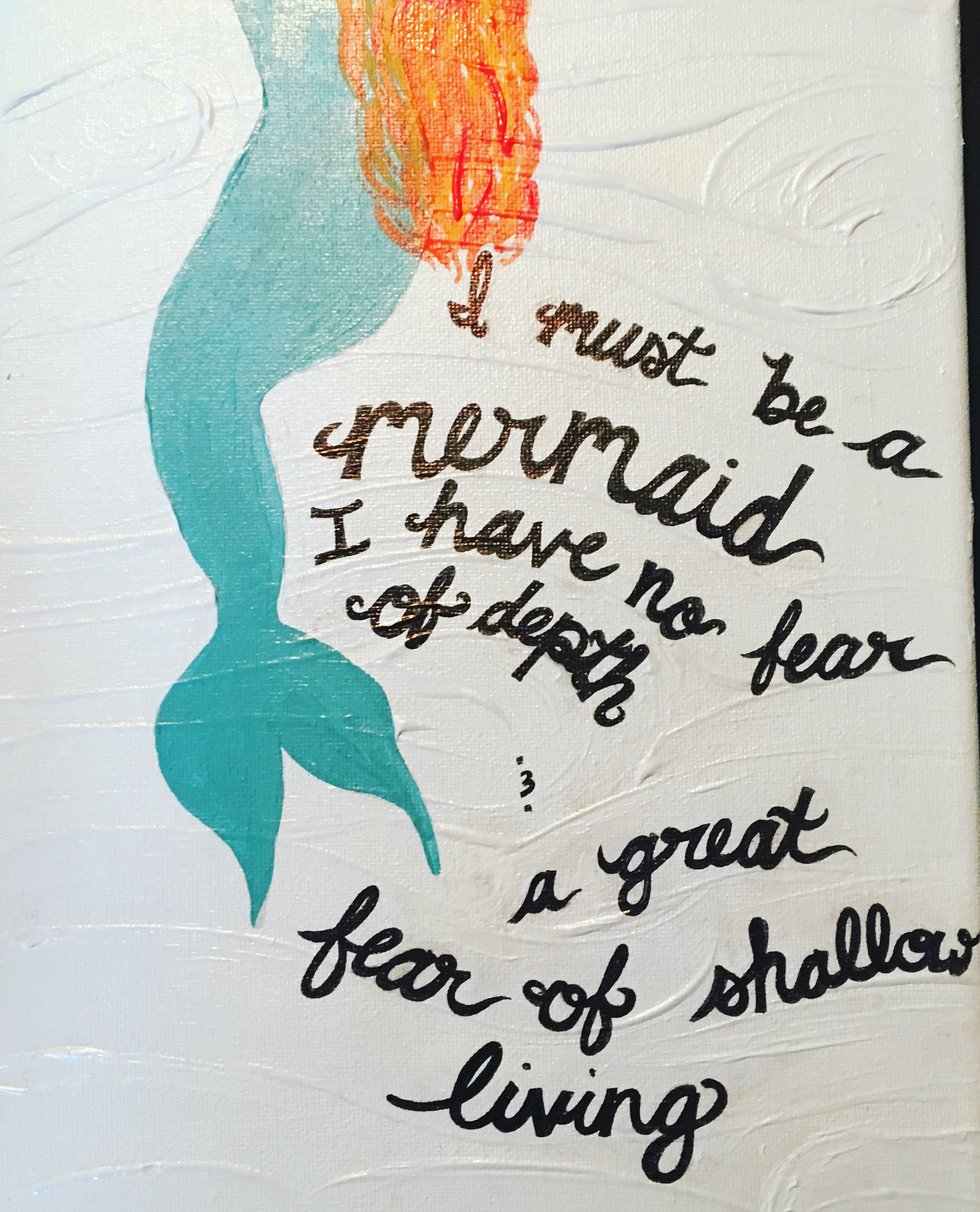 I must be a
mermaid
I have no fear
of depth
&
a great
fear of shallow
living